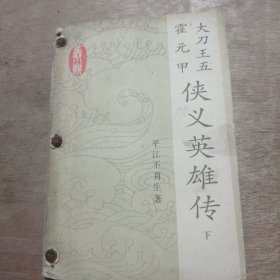 大刀王五
霍元甲
侠义英雄传
下
平江不肖生著